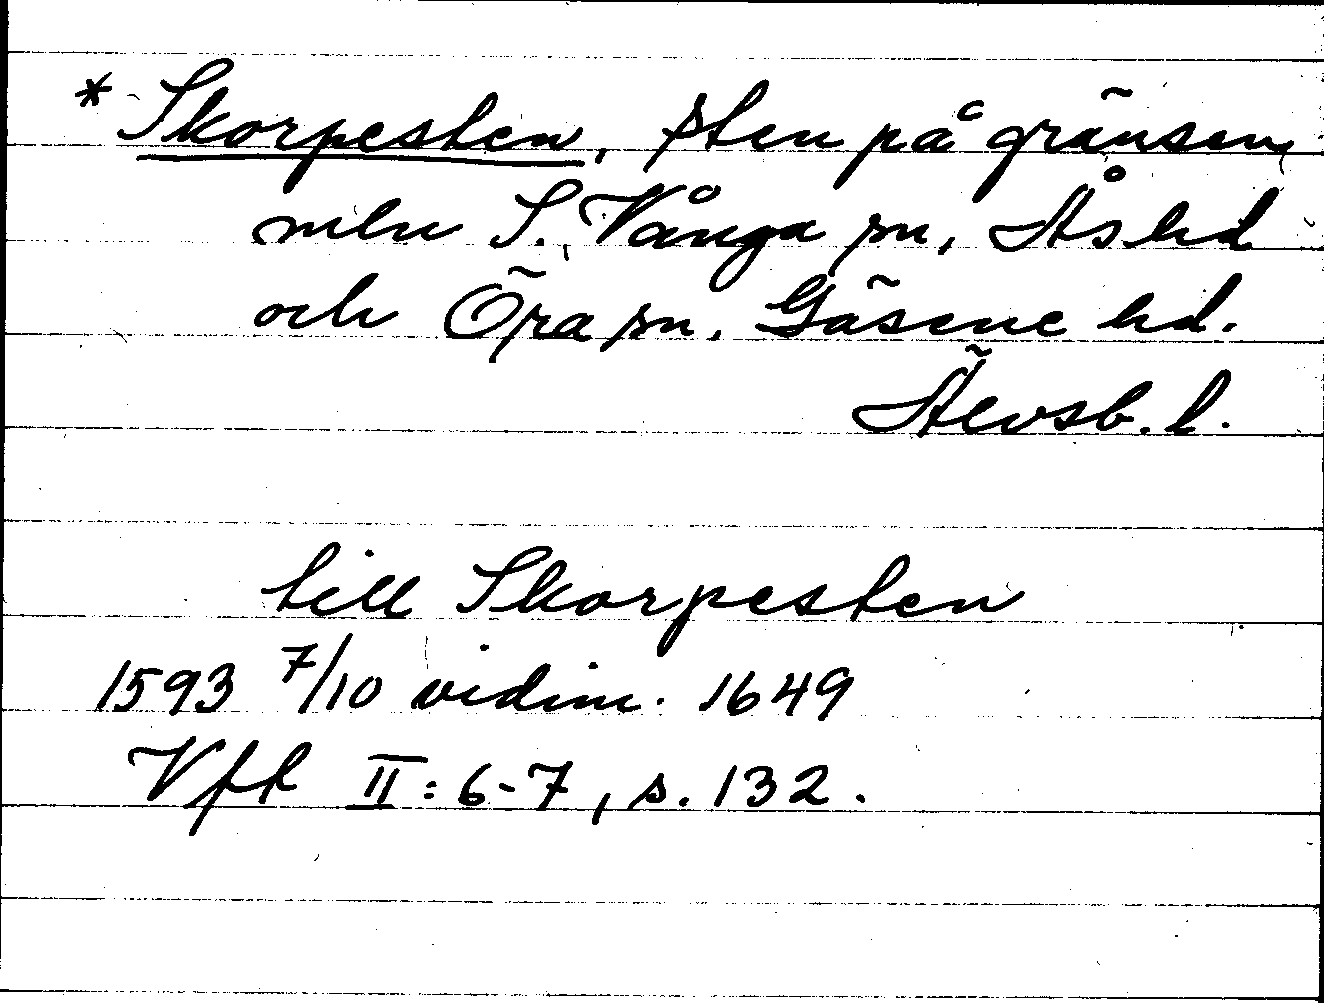 * Skorpesten, sten på gränsen
mln S. Vånga sn, Ås hd
och Öra sn, Gäsene hd.
Älvsb. l.
till Skorpesten
1593 7/10 vidim. 1649
Vft II: 6-7, s. 132.